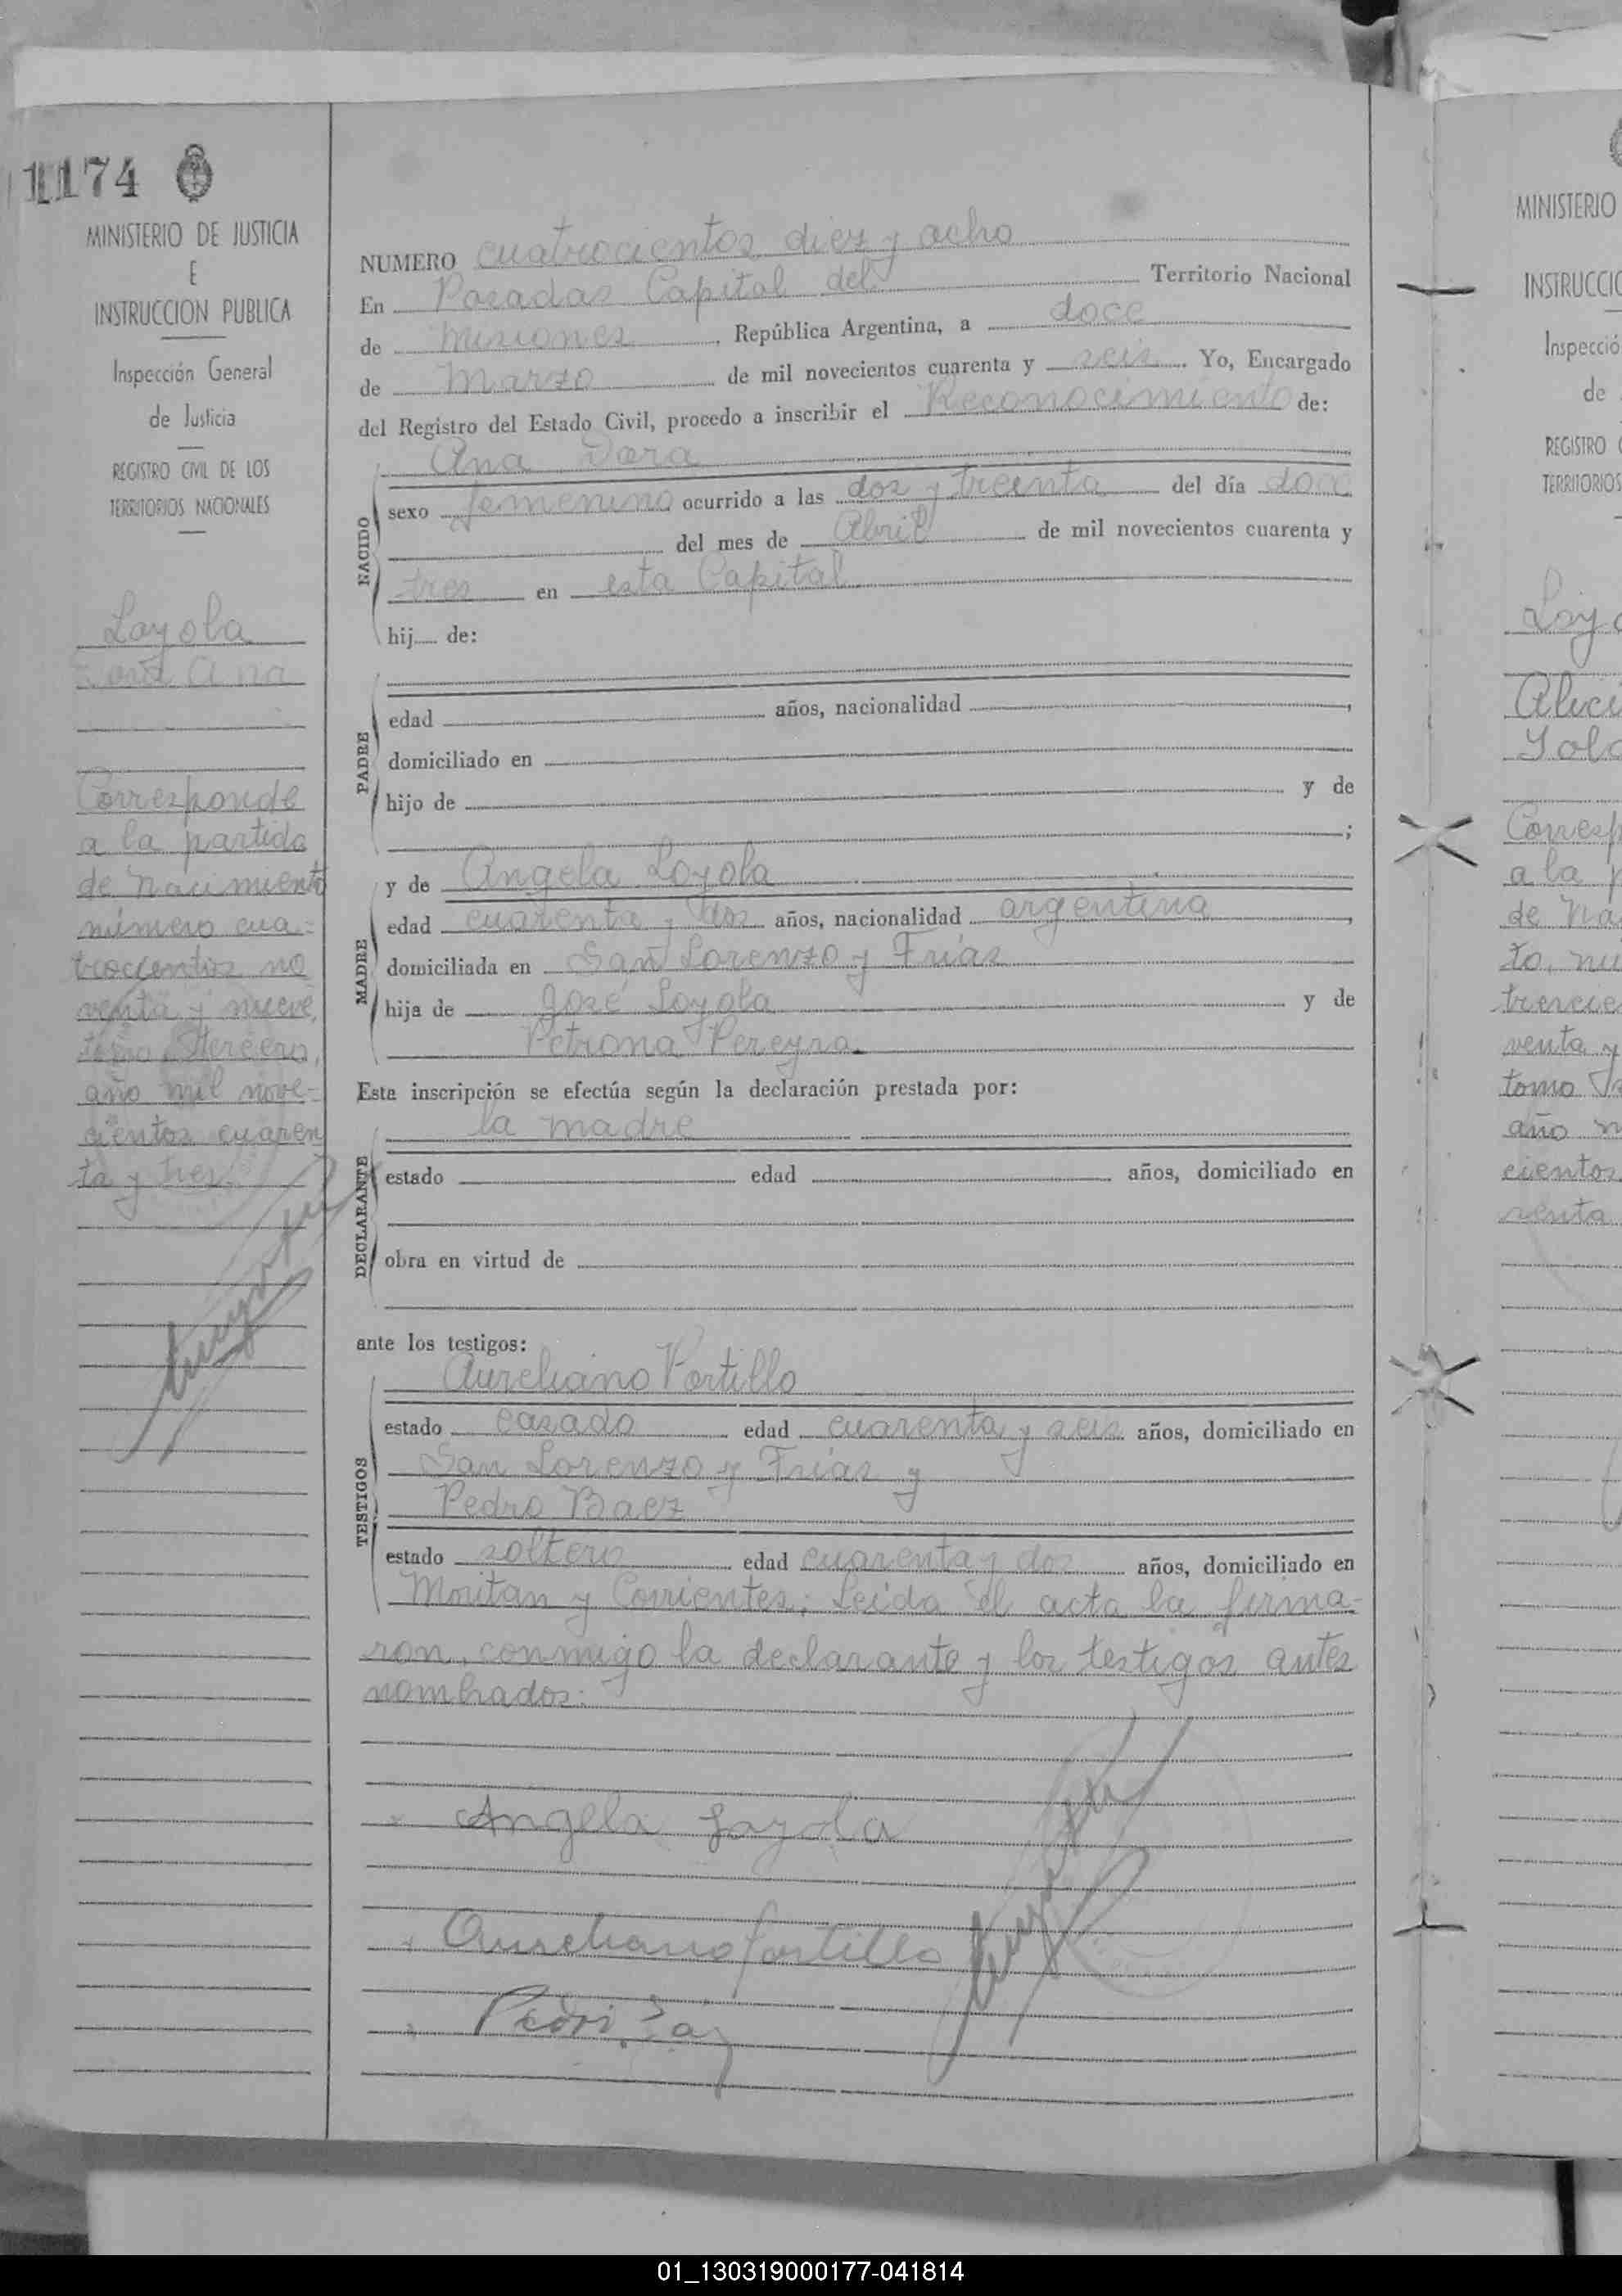 1174
MINISTERIO DE JUSTICIA
E
INSTRUCCION PUBLICA
Inspección General
de Justicia
REGISTRO CIVIL DE LOS
TERRITORIOS NACIONALES
Loyola
Ana
Corresponde
a la partida
de Nacimiento
número cua=
trocientos no
venta y nueve,
tomo tercero,
año mil nove=
cientos cuaren
ta y tres
NUMERO cuatrocientos diez y ocho
En Posadas Capital del Territorio Nacional
de Misiones, República Argentina, a doce
de Marzo de mil novecientos cuarenta y seis. Yo, Encargado
del Registro del Estado Civil, procedo a inscribir el Reconocimiento de:
Ana Dora
NACIDO
sexo femenino ocurrido a las dos y treinta del día doce
del mes de Abril de mil novecientos cuarenta y
tres en esta Capital
hij de:
PADRE
edad años, nacionalidad ,
domiciliado en
hijo de y de
;
MADRE
y de Angela Loyola
edad cuarenta y dos años, nacionalidad argentina,
domiciliada en San Lorenzo y Frías
hija de José Loyola y de
Petrona Pereyra.
Esta inscripción se efectúa según la declaración prestada por:
la madre
DECLARANTE
estado edad años, domiciliado en
obra en virtud de
ante los testigos:
Aureliano Portillo
TESTIGOS
estado casado edad cuarenta y seis años, domiciliado en
San Lorenzo y Frías y
Pedro Baez
estado soltero edad cuarenta y dos años, domiciliado en
y Corrientes; Leída el acta la firma=
ron, conmigo la declarante y los testigos antes
nombrados.
Angela Loyola
Aureliano Portillo
MINISTERIO
INSTRUCCIO
Inspecció
de
REGISTRO
TERRITORIOS
Loyo
Alici
Yola
Corresp
a la p
de Na
to, nu
trescie
venta y
tomo
año m
cientos
01_130319000177-041814